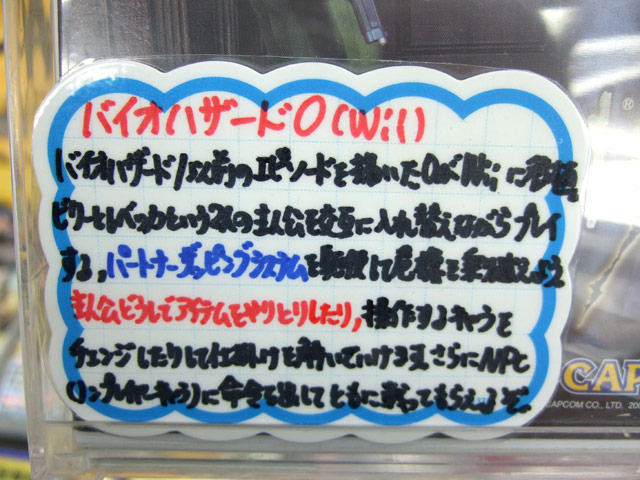 バイオハザード0(Wii)
バイオハザード1以前のエピソードを描いた0がWiiに移植。
ビリーとレベッカという2人の主人公を交互に入れ替えながらプレイ
する,パートナーザッピングシステムを駆使して危機を乗り越えよう
主人公どうしでアイテムをやりとりしたり,操作するキャラを
チェンジしたりして仕掛けを解いていけるぞ。さらにNPC
(ノンプレイヤーキャラ)に命令を出してともに戦ってもらえるぞ。
CAP
CAPCOM CO., LTD. 200